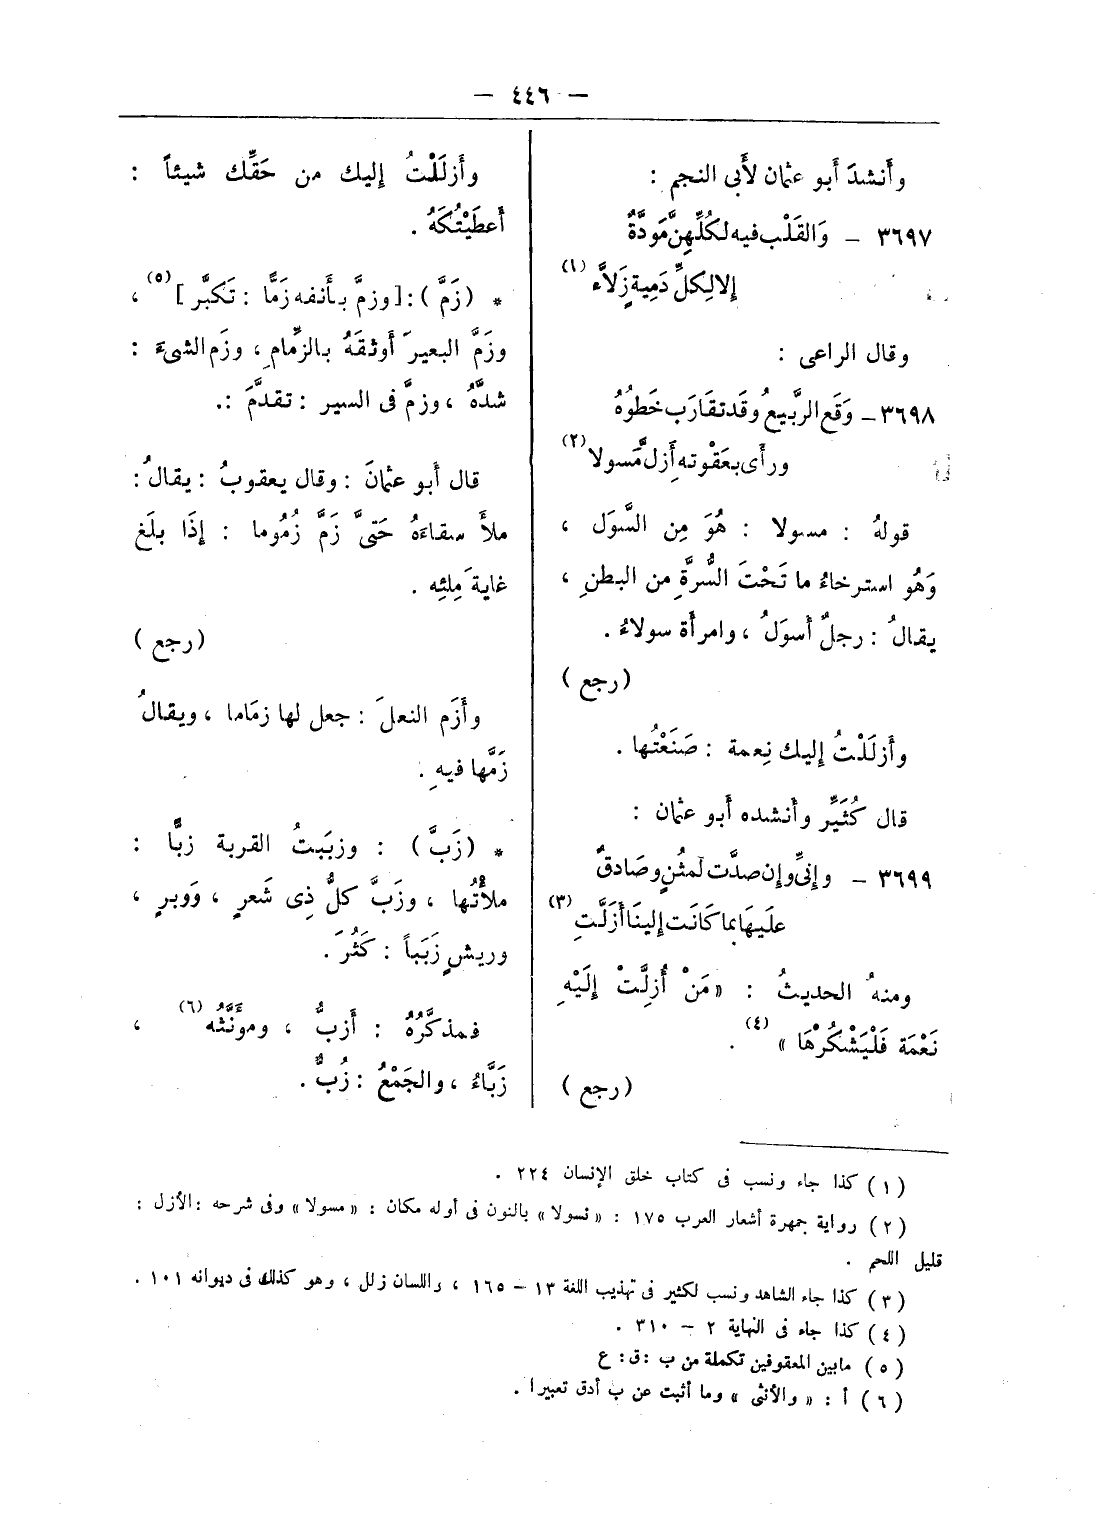 — ٤٤٦ —
وأَنشدَ أَبو عثمان لأَبى النجم :
٣٦٩٧ – وَالقَلْب فيه لكُلِّهِنَّ مَودَّةٌ
إلا لِكلِّ دَمِيةٍ زَلاَّء (١)
وقال الراعى :
٣٦٩٨ – وَقَع الرَّبيعُ وقَد تقَارَب خَطوُهُ
ورأَى بعَقْوته أَزلَّ مَسولا (٢)
قولهُ : مسولا : هُوَ مِن السَّوَل ،
وَهُو استرخاءُ ما تَحْتَ السُّرَّةِ من البطنِ ،
يقالُ : رجلٌ أَسوَلُ ، وامرأَة سولاءُ .
( رجع )
وأَزلَلْتُ إليك نِعمة : صَنَعْتُها .
قال كُثَيِّر وأَنشده أَبو عثمان :
٣٦٩٩ – وإنىِّ وإن صدَّت لَمثُنٍ وصَادقٌ
علَيهَا بما كَانَت إلينَا أَزَلَّتِ (٣)
ومنهُ الحديثُ : « مَنْ أُزِلَّتْ إلَيْهِ
نَعْمَة فَلْيَشْكُرْهَا » (٤) .
( رجع )
وأَزلَلْتُ إليك من حَقِّك شيئاً :
أَعطَيْتُكَهُ .
* ( زَمَّ ) : [ وزمَّ بأَنفه زَمًّا : تَكبَّر ] (٥) ،
وزَمَّ البعيرَ أَوثقَهُ بالزِّمامِ ، وزَم الشىءَ :
شدَّهُ ، وزمَّ فى السير : تقدَّمَ :.
قال أَبو عثمانَ : وقال يعقوبُ : يقالُ :
ملأَ سقاءَهُ حَتىَّ زَمَّ زُمُوما : إذَا بلَغ
غايةَ مِلئِه .
( رجع )
وأَزَم النعلَ : جعل لها زمَاما ، ويقالُ
زَمَّها فيهِ .
* ( زَبَّ ) : وزبَبتُ القربة زبًّا :
ملأْتُها ، وزَبَّ كلُّ ذِى شَعرٍ ، وَوبرٍ ،
وريشٍ زَبَباً : كَثُرَ .
فمذكَّرُهُ : أَزبُّ ، ومؤَنَّثُه (٦) ،
زَبَّاءُ ، والجَمْعُ : زُبٌّ .
( ١ ) كذا جاء ونسب فى كتاب خلق الإنسان ٢٢٤ .
( ٢ ) رواية جمهرة أشعار العرب ١٧٥ : « نسولا » بالنون فى أوله مكان : « مسولا » وفى شرحه : الأزل :
قليل اللحم .
( ٣ ) كذا جاء الشاهد ونسب لكثير فى تهذيب اللغة ١٣ – ١٦٥ ، واللسان زلل ، وهو كذلك فى ديوانه ١٠١ .
( ٤ ) كذا جاء فى النهاية ٢ – ٣١٠ .
( ٥ ) مابين المعقوفين تكملة من ب : ق : ع
( ٦ ) أ : « والأنثى » وما أثبت عن ب أدق تعبيرا .